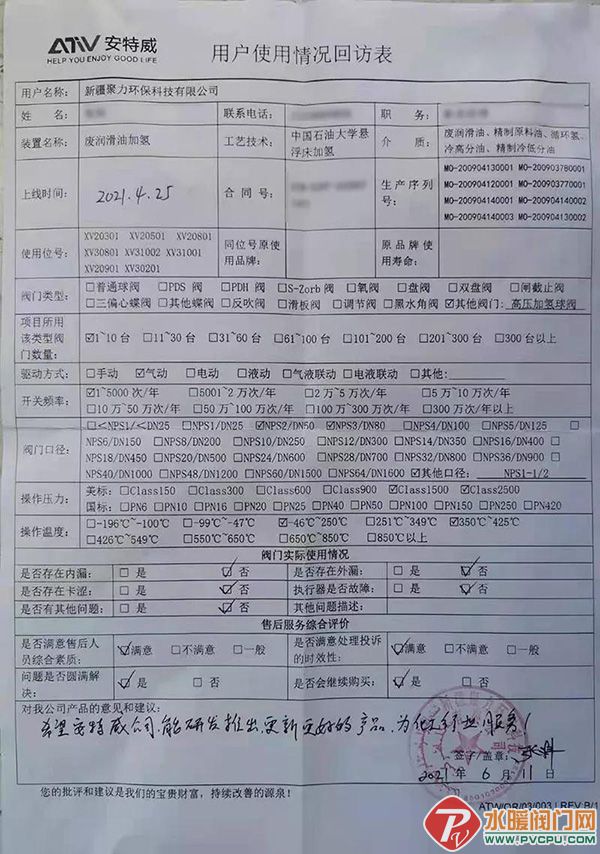 ATIV 安特威
HELP YOU ENJOY GOOD LIFE
用户使用情况回访表
用户名称: 新疆聚力环保科技有限公司
姓 名: 联系电话: 职 务:
装置名称: 废润滑油加氢 工艺技术: 中国石油大学悬浮床加氢 介 质: 废润滑油、精制原料油、循环氢、冷高分油、精制冷低分油
上线时间: 2021.4.25 合 同 号: 生产序列号:
MO-200904130001 MO-200903780001
MO-200904120001 MO-200903770001
MO-200904140001 MO-200904140002
MO-200904140003 MO-200904130002
使用位号: XV20301 XV20501 XV20801
XV30801 XV31002 XV31001
XV20901 XV30201
同位号原使用品牌: 原品牌使用寿命:
阀门类型: □普通球阀 □PDS 阀 □PDH 阀 □S-Zorb 阀 □氧阀 □盘阀 □双盘阀 □闸截止阀
□三偏心蝶阀 □其他蝶阀 □反吹阀 □滑板阀 □调节阀 □黑水角阀 ☑其他阀门: 高压加氢球阀
项目所用该类型阀门数量: ☑1~10 台 □11~30 台 □31~60 台 □61~100 台 □101~200 台 □201~300 台 □300 台以上
驱动方式: □手动 ☑气动 □电动 □液动 □气液联动 □电液联动 □其他:
开关频率: ☑1~5000 次/年 □5001~2 万次/年 □2 万~5 万次/年 □5 万~10 万次/年
□10 万~50 万次/年 □50 万~100 万次/年 □100 万~300 万次/年 □300 万次/年以上
阀门口径: □<NPS1/<DN25 □NPS1/DN25 ☑NPS2/DN50 ☑NPS3/DN80 □NPS4/DN100 □NPS5/DN125 □
NPS6/DN150 □NPS8/DN200 □NPS10/DN250 □NPS12/DN300 □NPS14/DN350 □NPS16/DN400 □
NPS18/DN450 □NPS20/DN500 □NPS24/DN600 □NPS28/DN700 □NPS32/DN800 □NPS36/DN900 □
NPS40/DN1000 □NPS48/DN1200 □NPS60/DN1500 □NPS64/DN1600 ☑其他口径: NPS1-1/2
操作压力: 美标: □Class150 □Class300 □Class600 □Class900 ☑Class1500 ☑Class2500
国标: □PN6 □PN10 □PN16 □PN20 □PN25 □PN40 □PN50 □PN63 □PN100 □PN150 □PN250 □PN420
操作温度: □-196℃~-100℃ □-99℃~-47℃ ☑-46℃~250℃ □251℃~349℃ ☑350℃~425℃
□426℃~549℃ □550℃~650℃ □650℃~850℃ □850℃以上
阀门实际使用情况
是否存在内漏: □ 是 ☑ 否 是否存在外漏: □ 是 ☑ 否
是否存在卡涩: □ 是 ☑ 否 执行器是否故障: □ 是 ☑ 否
是否有其他问题: □ 是 ☑ 否 其他问题描述:
售后服务综合评价
是否满意售后人员综合素质: ☑满意 □不满意 □一般 是否满意处理投诉的时效性: ☑满意 □不满意 □一般
问题是否圆满解决: ☑ 是 □ 否 是否会继续购买: ☑ 是 □ 否
对我公司产品的意见和建议:
希望安特威公司,能研发推出更新更好的产品,为化工行业服务!
签字/盖章:
2021 年 6 月 11 日
您的批评和建议是我们的宝贵财富,持续改善的源泉!
ATV/QR/03/003 | REV:B/1
水暖阀门网
WWW.PVCPU.COM